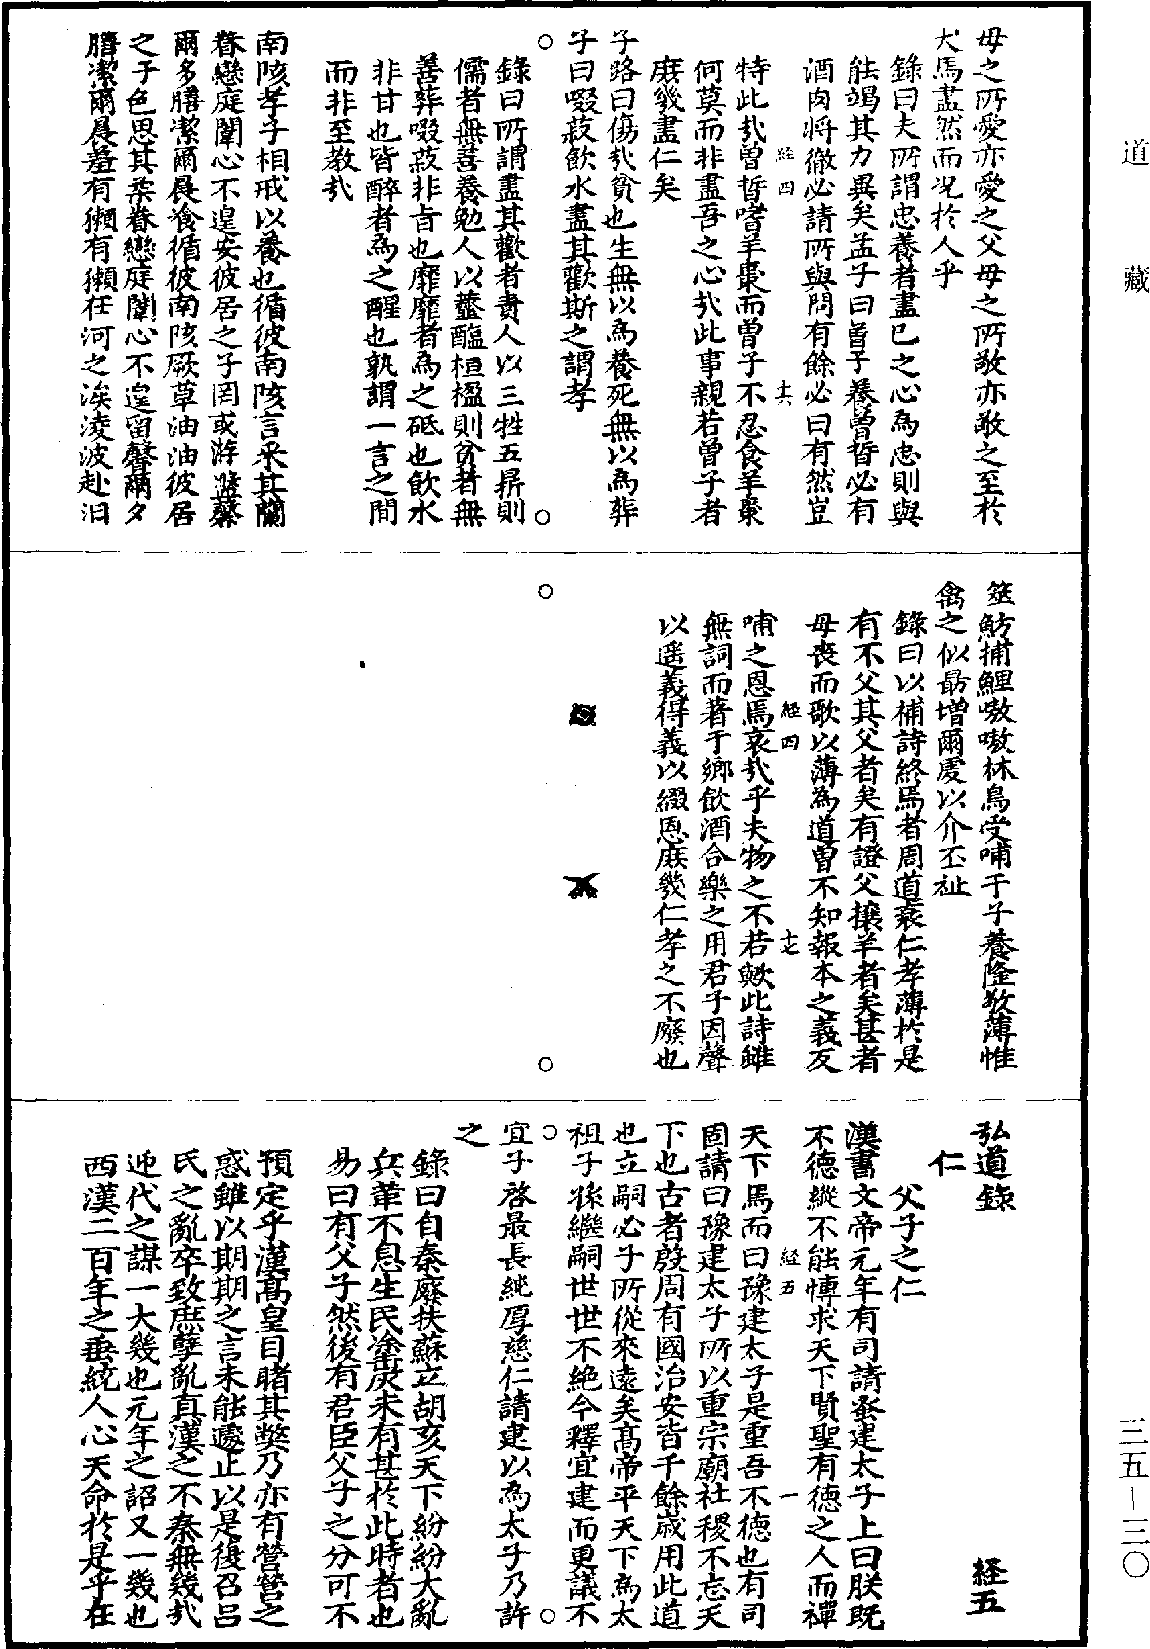 道藏
母之所愛亦愛之父母之所敬亦敬之至於
犬馬盡然而況於人乎
錄曰夫所謂忠養者盡已之心為忠則與
能竭其力異矣孟子曰曾子養曾晳必有
酒肉將徹必請所與問有餘必曰有然豈
經四
十六
特此哉曾晳嗜羊棗而曾子不忍食羊棗
何莫而非盡吾之心哉此事親若曾子者
庶幾盡仁矣
子路曰傷哉貧也生無以為養死無以為葬
子曰啜菽飲水盡其歡斯之謂孝
錄曰所謂盡其歡者責人以三牲五鼎則
儒者無善養勉人以虀醢桓楹則貧者無
善葬啜菽非旨也靡靡者為之砥也飲水
非甘也皆醉者為之醒也孰謂一言之間
而非至教哉
南陔孝子相戒以養也循彼南陔言采其蘭
眷戀庭闈心不遑安彼居之子罔或游盤馨
爾多膳潔爾晨飡循彼南陔厥草油油彼居
之子色思其柔眷戀庭闈心不遑留馨爾夕
膳潔爾晨羞有獺有獺在河之涘淩波赴汨
筮魴捕鯉嗷嗷林烏受哺于子養隆敬薄惟
禽之似勗增爾虔以介丕祉
錄曰以補詩終焉者周道衰仁孝薄於是
有不父其父者矣有證父攘羊者矣甚者
母喪而歌以薄為道曾不知報本之義反
經四
十七
哺之恩焉哀哉乎夫物之不若歟此詩雖
無詞而著于鄉飲酒合樂之用君子因聲
以遥義得義以綴恩庶幾仁孝之不廢也
弘道錄
經五
父子之仁
仁
漢書文帝元年有司請蚤建太子上曰朕既
不德縱不能慱求天下賢聖有德之人而禪
經五
一
天下焉而曰豫建太子是重吾不德也有司
固請曰豫建太子所以重宗廟社稷不忘天
下也古者殷周有國治安皆千餘歲用此道
也立嗣必子所從來遠矣髙帝平天下為太
祖子孫繼嗣世世不絶今釋宜建而更議不
宜子啓最長純厚慈仁請建以為太子乃許
之
錄曰自秦廢扶蘇立胡亥天下紛紛大亂
兵革不息生民塗炭未有甚於此時者也
易曰有父子然後有君臣父子之分可不
預定乎漢髙皇目睹其獘乃亦有營營之
惑雖以期期之言未能遽止以是後召呂
民之亂卒致庶孽亂真漢之不秦無幾哉
迊代之謀一大幾也元年之詔又一幾也
西漢二百年之垂統人心天命於是乎在
三五-三〇